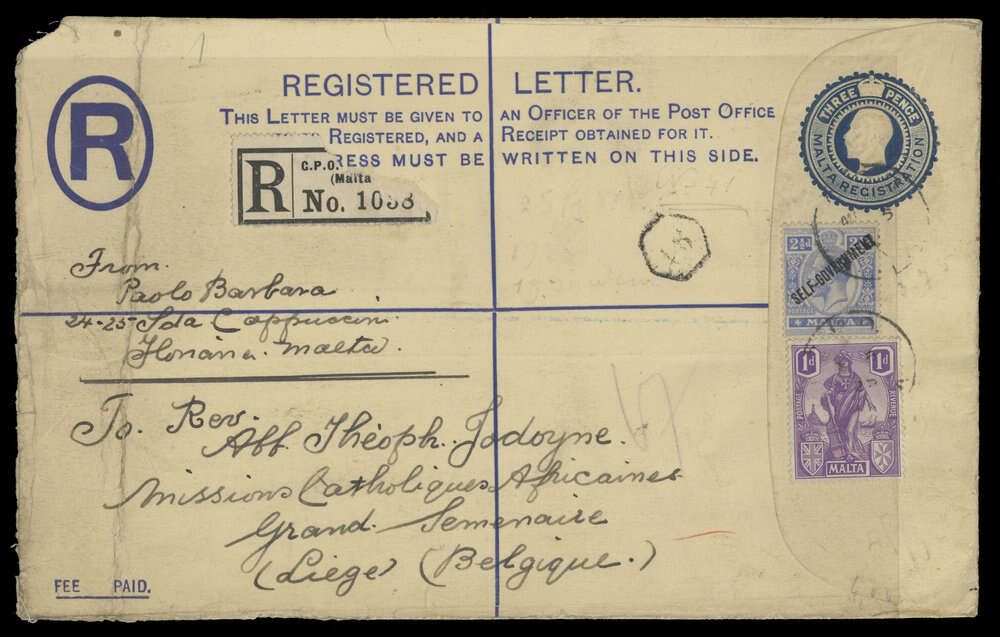 1
REGISTERED LETTER.
THIS LETTER MUST BE GIVEN TO AN OFFICER OF THE POST OFFICE
REGISTERED, AND A RECEIPT OBTAINED FOR IT.
RESS MUST BE WRITTEN ON THIS SIDE.
R
R
G.P.O.
(Malta
No. 1098
THREE PENCE
MALTA REGISTRATION
2½d
SELF-GOVERNMENT
POSTAGE
MALTA
1d 1d
POSTAGE REVENUE
MALTA
From
Paolo Barbara
24-25 Sda Cappuccini
Floriana. Malta.
To. Rev.
Abb. Théoph. Jodoyne.
Missions Catholiques Africaines
Grand. Semenaire
(Liege) (Belgique.)
FEE PAID.